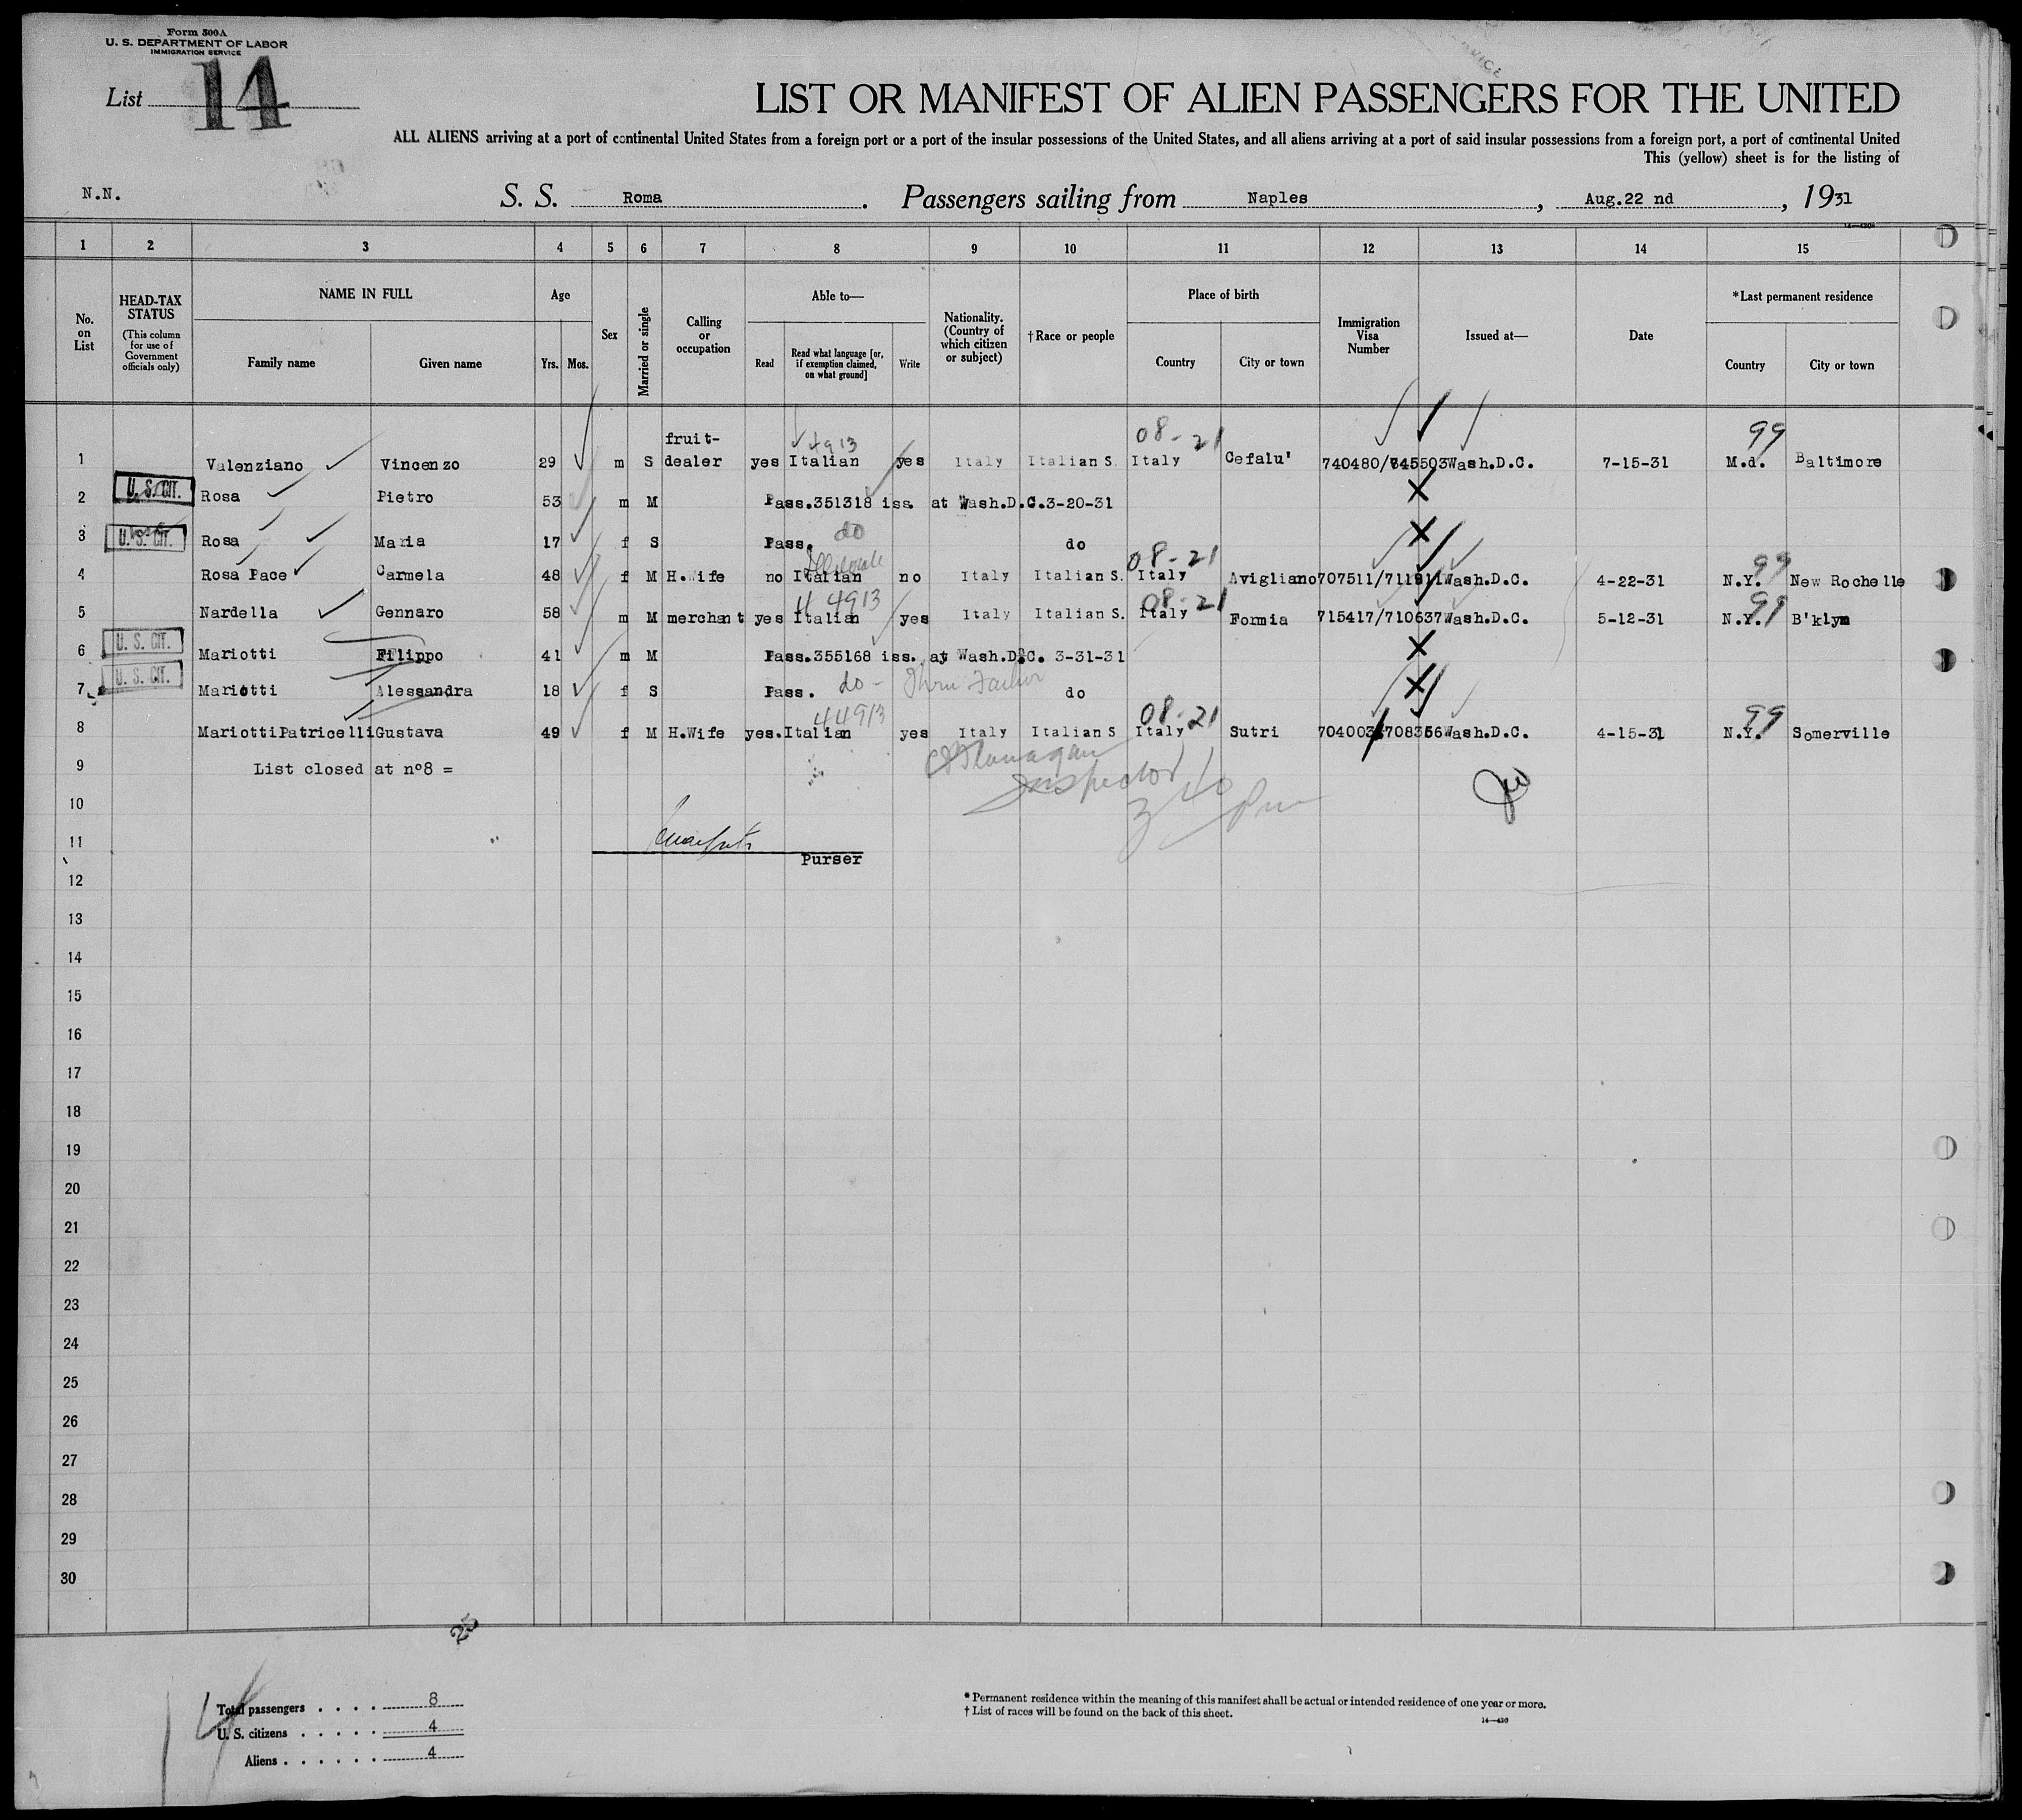 Form 500A
U. S. DEPARTMENT OF LABOR
IMMIGRATION SERVICE
List 14
LIST OR MANIFEST OF ALIEN PASSENGERS FOR THE UNITED
ALL ALIENS arriving at a port of continental United States from a foreign port or a port of the insular possessions of the United States, and all aliens arriving at a port of said insular possessions from a foreign port, a port of continental United
This (yellow) sheet is for the listing of
N.N. S. S. Roma. Passengers sailing from Naples, Aug.22 nd, 1931
1 2 3 4 5 6 7 8 9 10 11 12 13 14 15
No. on List
HEAD-TAX STATUS
(This column for use of Government officials only)
NAME IN FULL
Family name Given name
Age
Yrs. Mos.
Sex
Married or single
Calling or occupation
Able to—
Read
Read what language [or, if exemption claimed, on what ground]
Write
Nationality. (Country of which citizen or subject)
† Race or people
Place of birth
Country City or town
Immigration Visa Number
Issued at—
Date
*Last permanent residence
Country City or town
4913 08-21 99
1 Valenziano Vincenzo 29 m S fruit-dealer yes Italian yes Italy Italian S. Italy Cefalu' 740480/745503 Wash.D.C. 7-15-31 M.d. Baltimore
2 U. S. CIT. Rosa Pietro 53 m M Pass.351318 iss. at Wash.D.C.3-20-31
3 U. S. CIT. Rosa Maria 17 f S Pass. do do
08-21 99
4 Rosa Pace Carmela 48 f M H.Wife no Italian no Italy Italian S. Italy Avigliano 707511/ Wash.D.C. 4-22-31 N.Y. New Rochelle
4913 08-21 99
5 Nardella Gennaro 58 m M merchant yes Italian yes Italy Italian S. Italy Formia 715417/710637 Wash.D.C. 5-12-31 N.Y. B'klyn
6 U. S. CIT. Mariotti Filippo 41 m M Pass.355168 iss. at Wash.D.C. 3-31-31
7 U. S. CIT. Mariotti Alessandra 18 f S Pass. do - Thru Father do
44913 08-21 99
8 Mariotti Patricelli Gustava 49 f M H.Wife yes. Italian yes Italy Italian S Italy Sutri Wash.D.C. 4-15-31 N.Y. Somerville
9 List closed at nº8 =
Inspector
10
3 40 Pm
11
Purser
12
13
14
15
16
17
18
19
20
21
22
23
24
25
26
27
28
29
30
Total passengers . . . . 8
U. S. citizens . . . . . 4
Aliens . . . . . . 4
* Permanent residence within the meaning of this manifest shall be actual or intended residence of one year or more.
† List of races will be found on the back of this sheet.
14—430